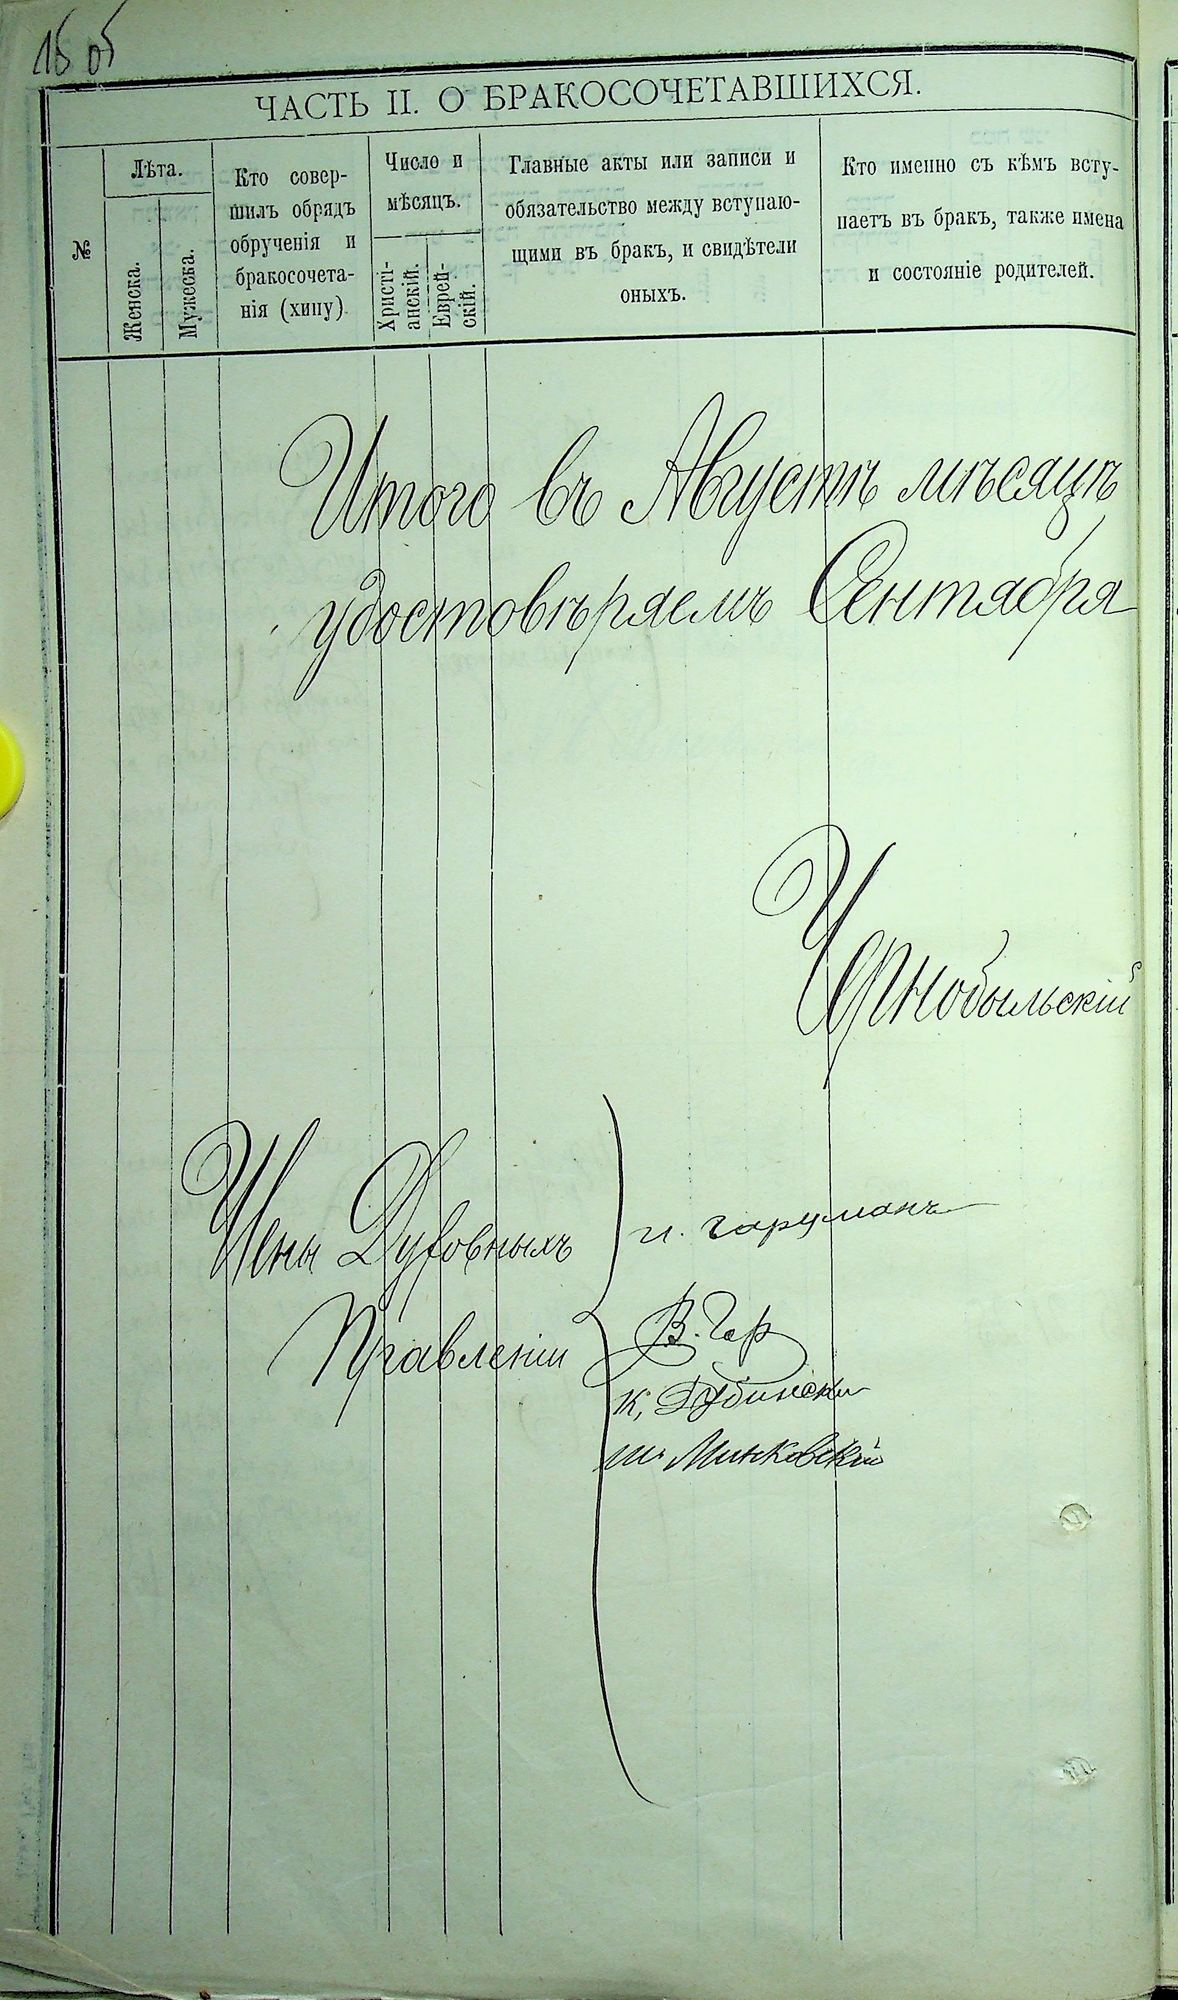 16 об
ЧАСТЬ II. О БРАКОСОЧЕТАВШИХСЯ.
№
Лѣта.
Женска.
Мужеска.
Кто совер-
шилъ обрядъ
обрученія и
бракосочета-
нія (хипу)
Число и
мѣсяцъ.
Христі-
анскій.
Еврей-
скій.
Главные акты или записи и
обязательство между вступаю-
щими въ бракъ, и свидѣтели
оныхъ.
Кто именно съ кѣмъ всту-
паетъ въ бракъ, также имена
и состояніе родителей.
Итого въ Августѣ мѣсяцѣ
удостовѣряемъ Сентября
Чернобыльскій
Члены Духовныхъ
Правленіи
В. Гер
к. Дубински
ш. Минковскій